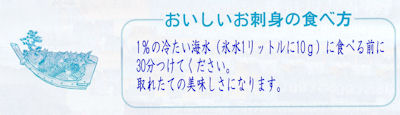 おいしいお刺身の食べ方
1%の冷たい海水(氷水1リットルに10g)に食べる前に
30分つけてください。
取れたての美味しさになります。